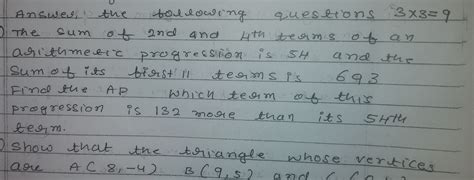 Answer the following questions 3×3=9
) The sum of 2nd and 4th terms of an
arithmetic progression is 54 and the
sum of its first 11 terms is 693
Find the AP which term of this
progression is 132 more than its 54th
term.
) Show that the triangle whose vertices
are A(8,-4) B(9,5) and